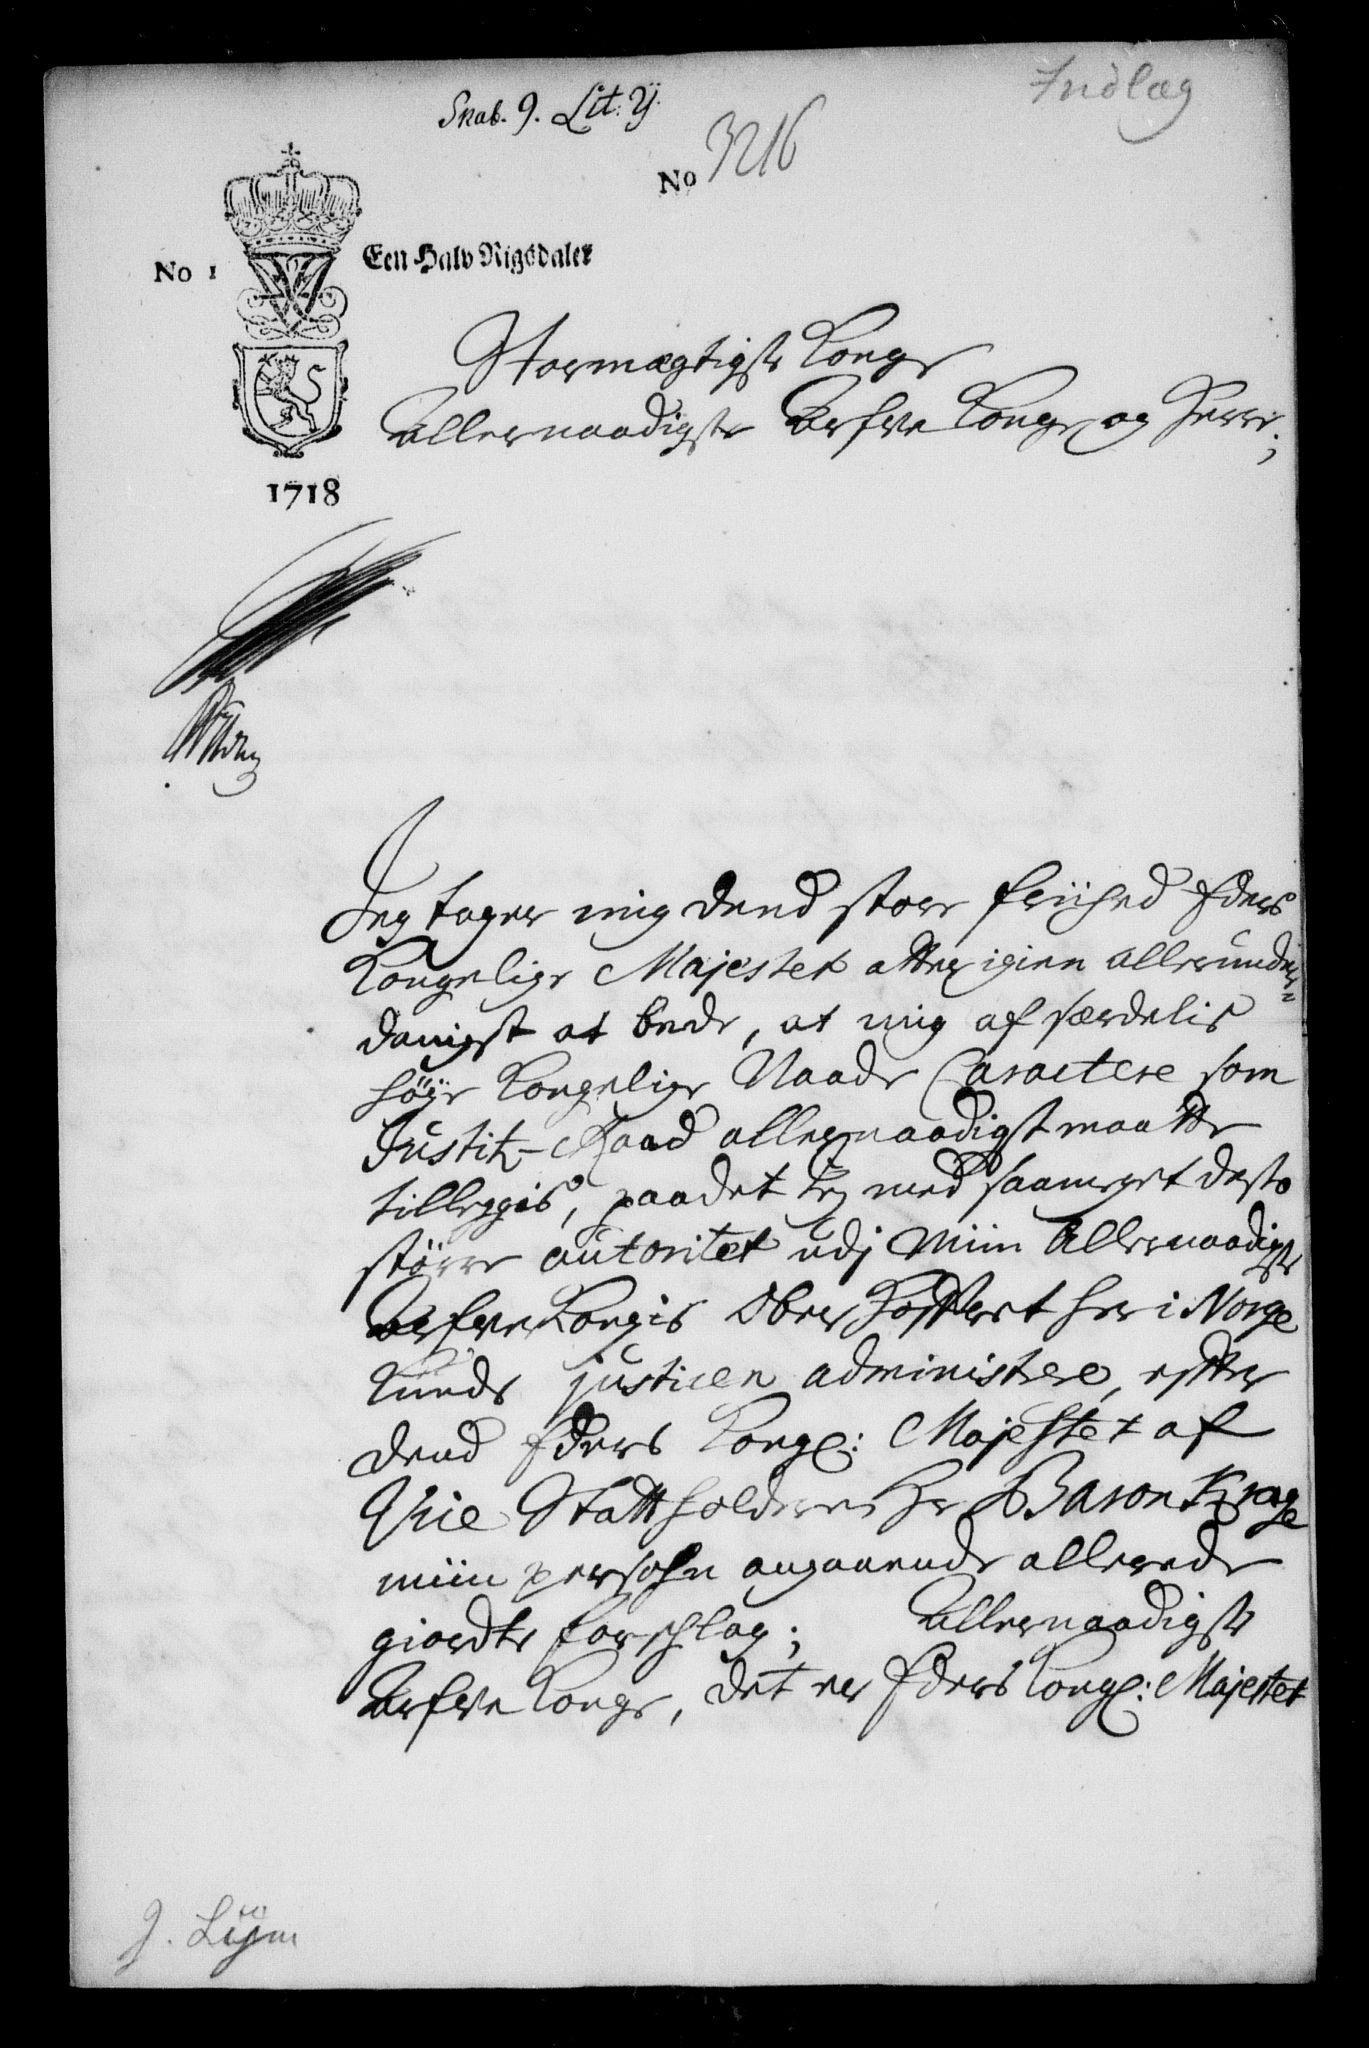 Indlæg
Skab. 9. Lit: ÿ.
No 3216
No 1 Een Halv Rigsdaler
1718
Stormægtigste Konge
Allernaadigste Arfve Konge og Herre;
Jeg tager mig dend store friihed Eders
Kongelige Majestet atter igien allerunder=
danigst at bede, at mig af særdelis
höÿe Kongelige Naade Caractere som
Justitz-Raad allernaadigst maatte
tilleggis, paa det Jeg med saameget desto
större autoritet udj Miin Allernaadigste
ArfveKongis Ober Hoffret her i Norge
kunde justicen administrere, effter
dend Eders Kongl: Majestet af
Vice Stattholderen Hr Baron Krage
miin persohn angaaende allerede
giordte forschlag; Allernaadigste
Arfve Konge, det er Eders Kongl: Majestet
9. Lÿm